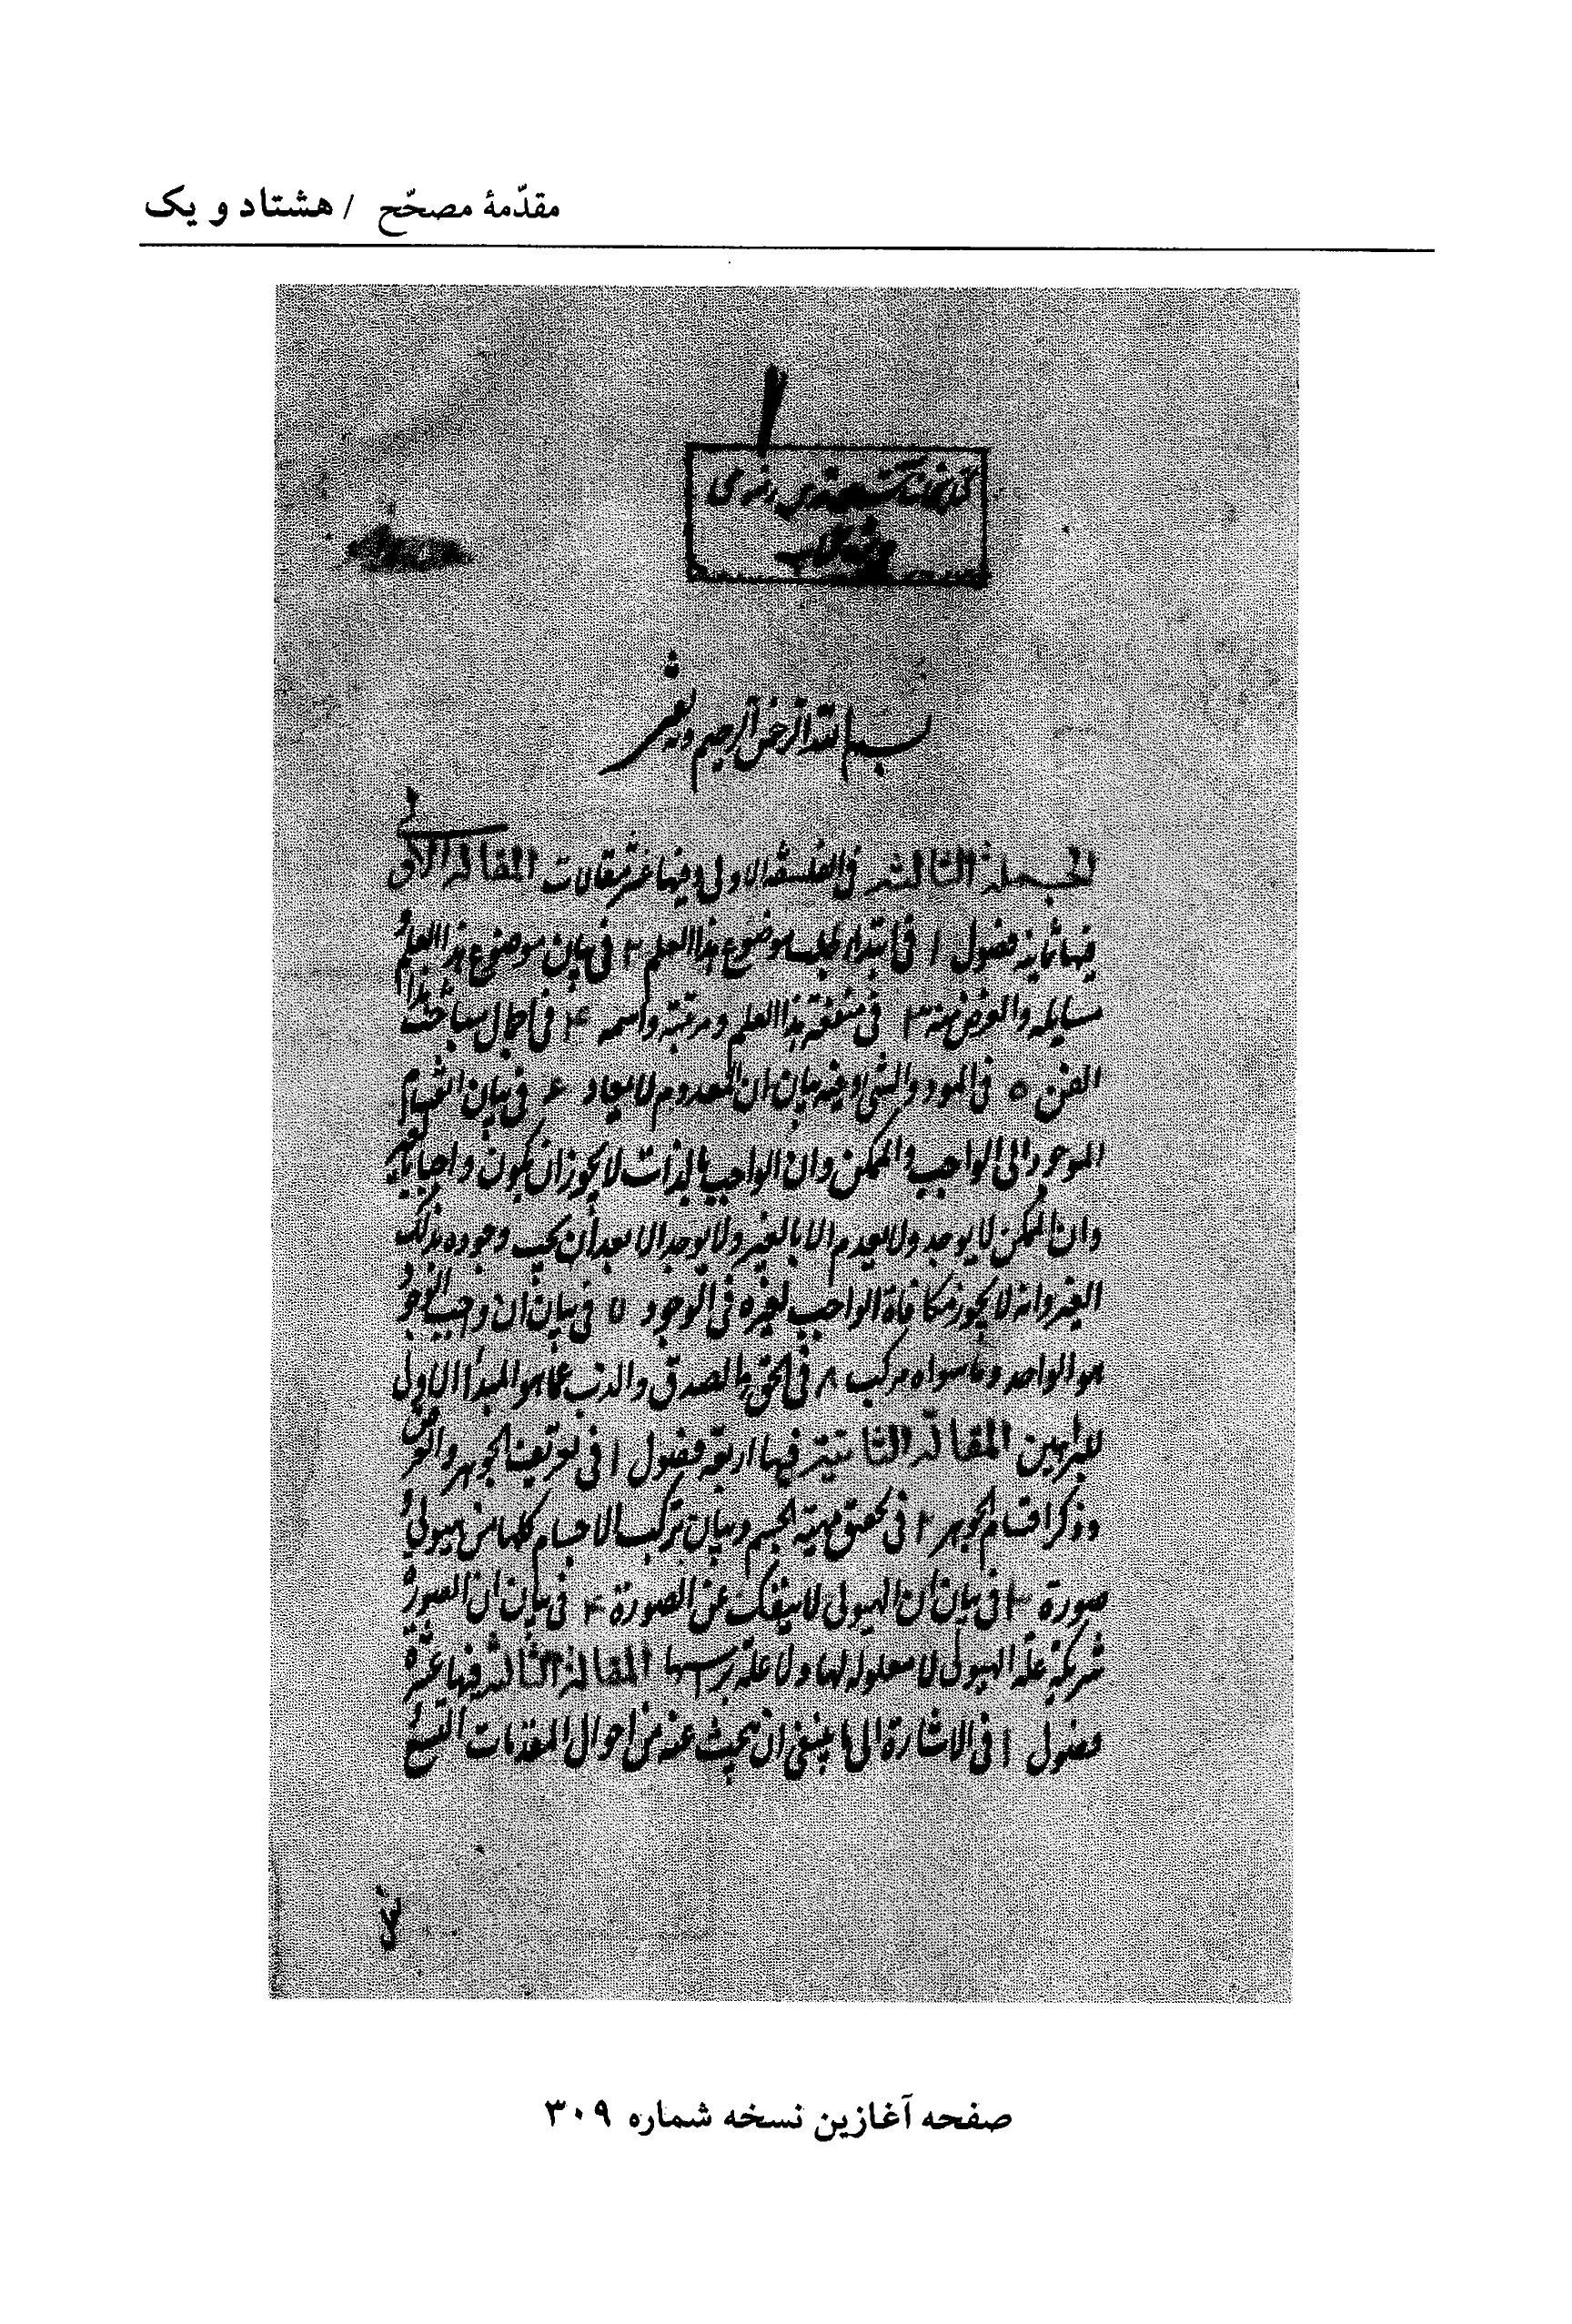 مقدّمهٔ مصحّح / هشتاد و یک
کتابخانه آستان قدس رضوی
بسم الله الرحمن الرحیم وبه نعتی
الجملة الثالثة فی الفلسفه الاولی وفیها عشر مقالات المقالة الاولی
فیها ثمانیة فصول ۱ فی ابتداء طلب موضوع هذا العلم ۲ فی بیان موضوع هذا العلم و
مسایله والغرض منه ۳ فی منفعة هذا العلم ومرتبته واسمه ۴ فی اجمال مباحث هذا
الفن ۵ فی الموجود والشی وفیه بیان ان المعدوم لا یعاد ۶ فی بیان انقسام
الموجود الی الواجب والممکن وان الواجب بالذات لا یجوز ان یکون واجبا بالغیر
وان الممکن لا یوجد ولا یعدم الا بالغیر ولا یوجد الا بعد ان یجب وجوده بذلک
الغیر وانه لا یجوز مکافاة الواجب لغیره فی الوجود ۷ فی بیان ان واجب الوجود
هو الواحد وما سواه مرکب ۸ فی الحق والصدق والذب عما هو المبدأ الاول
للبراهین المقالة الثانیة فیها اربعة فصول ۱ فی تعریف الجوهر والعرض
وذکر اقسام الجوهر ۲ فی تحقیق مهیة الجسم وبیان ترکب الاجسام کلها من هیولی و
صورة ۳ فی بیان ان الهیولی لا ینفک عن الصورة ۴ فی بیان ان الصورة
شریکة علة الهیولی لا معلولة لها ولا علة براسها المقالة الثالثة فیها عشرة
فصول ۱ فی الاشارة الی ما ینبغی ان یبحث عنه من احوال المقولات التسع
صفحه آغازین نسخه شماره ۳۰۹